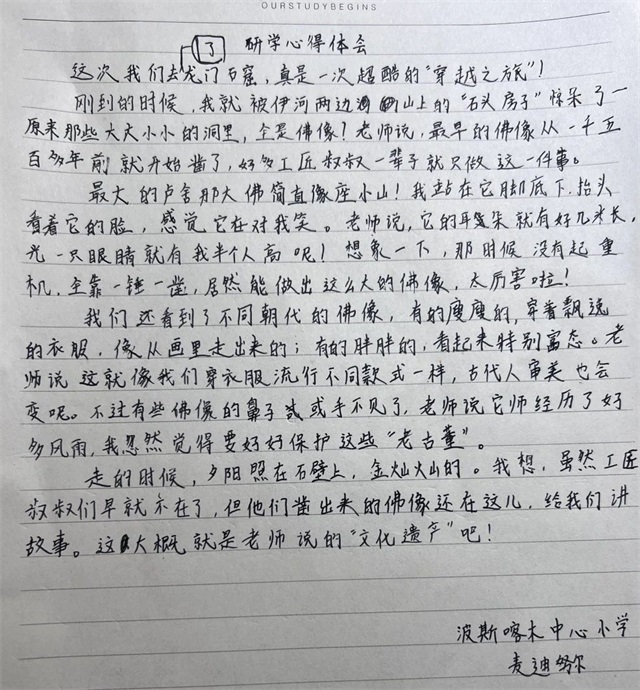 OURSTUDYBEGINS
研学心得体会
这次我们去了龙门石窟,真是一次超酷的“穿越之旅”!
刚到的时候,我就被伊河两边山上的“石头房子”惊呆了一
原来那些大大小小的洞里,全是佛像?老师说,最早的佛像从一千五
百多年前就开始凿了,好多工匠叔叔一辈子就只做这一件事。
最大的卢舍那大佛简直像座小山!我站在它脚底下,抬头
看着它的脸,感觉它在对我笑。老师说,它的耳朵就有好几米长,
光一只眼睛就有我半个人高呢!想象一下,那时候没有起重
机,全靠一锤一凿,居然能做出这么大的佛像,太厉害啦!
我们还看到了不同朝代的佛像,有的瘦瘦的,穿着飘逸
的衣服,像从画里走出来的;有的胖胖的,看起来特别富态。老
师说这就像我们穿衣服流行不同款式一样,古代人审美也会
变呢。不过有些佛像的鼻子或手不见了,老师说它师经历了好
多风雨,我忽然觉得要好好保护这些“老古董”。
走的时候,夕阳照在石壁上,金灿火山的。我想,虽然工匠
叔叔们早就不在了,但他们凿出来的佛像还在这儿,给我们讲
故事。这大概就是老师说的“文化遗产”吧!
波斯喀木中心小学
麦迪努尔